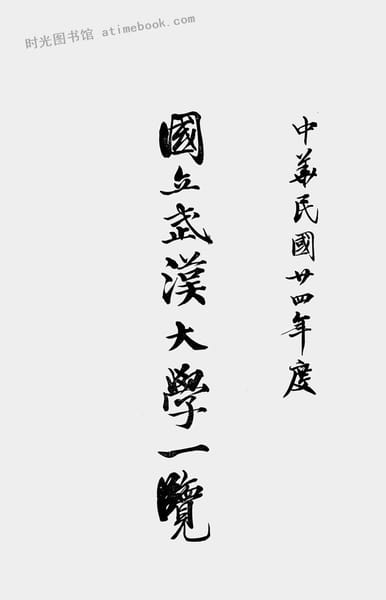 时光图书馆 atimebook.com
中華民國廿四年度
國立武漢大學一覽